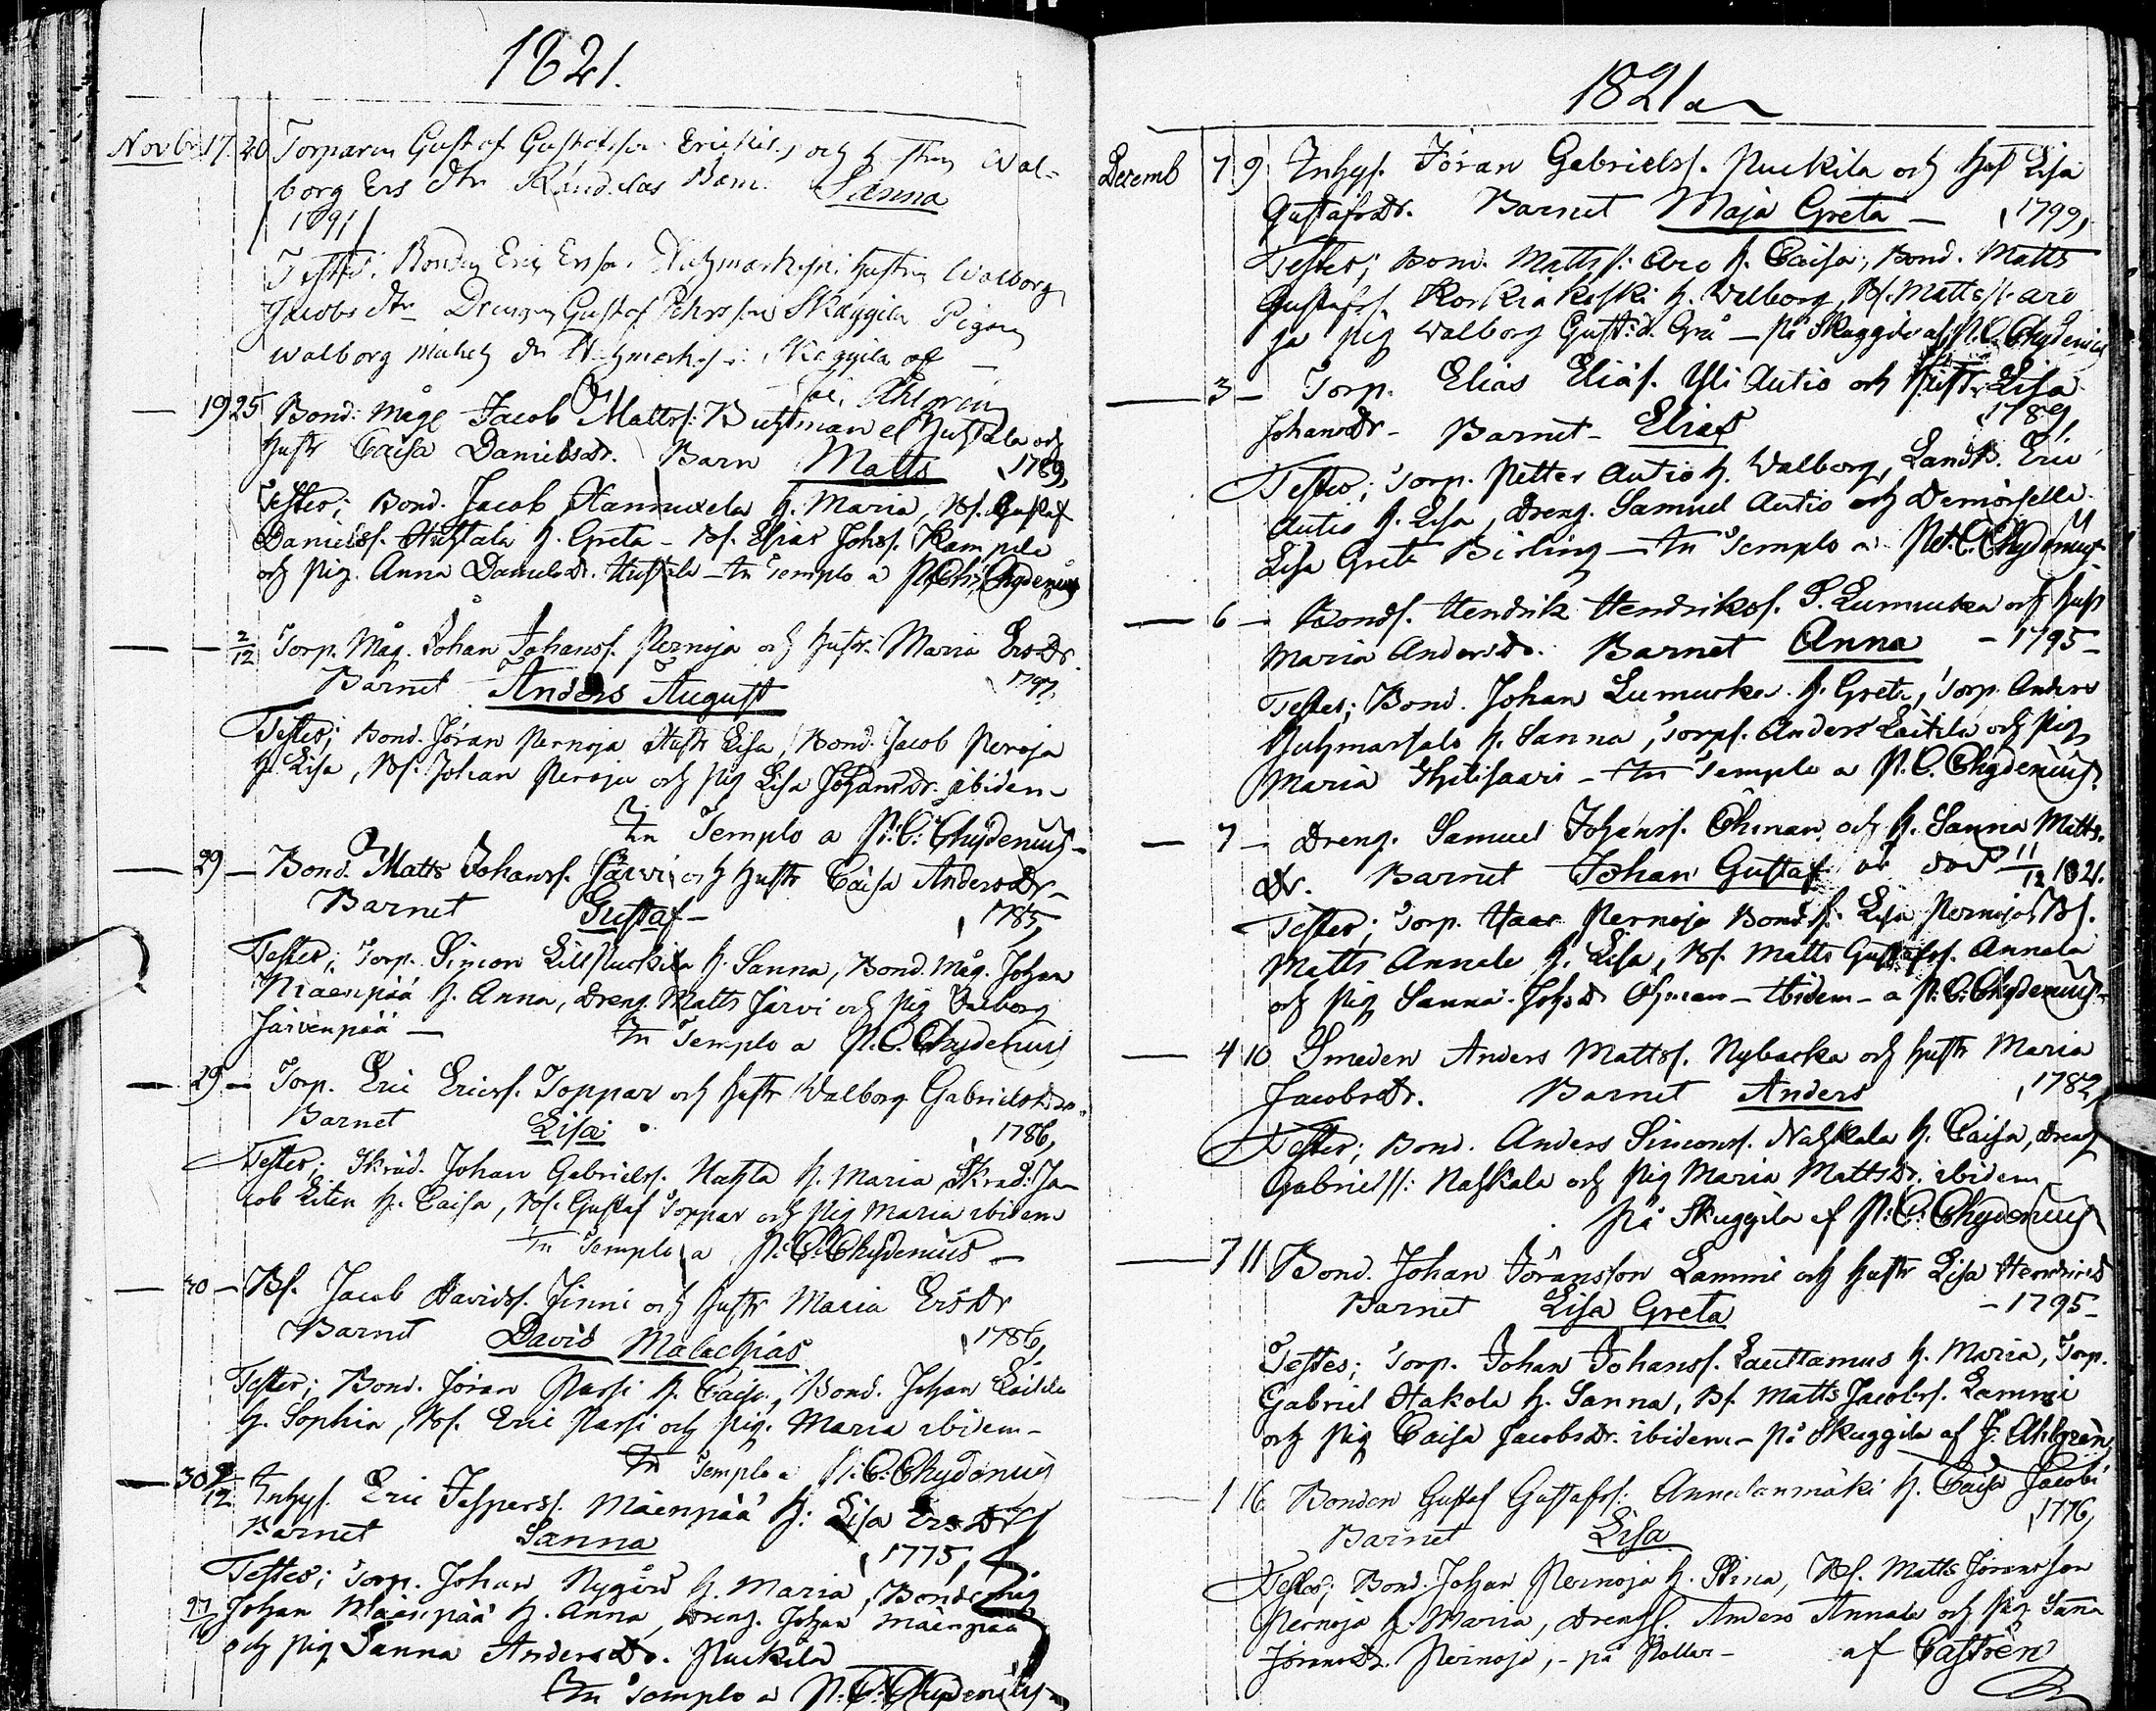 1821.
Novbr 17. 20 Torparen Gustaf Gustafsson och hustru Wal-
borg Ers dtr Barn. Sanna
1791
Testes: Bonden Eric Ersson hustru Walborg
Jacobs dtr Drengen Gustaf Skäggila Pigan
Walborg Michels dr Skäggila af
Ahlgren
— 19 25 Bond. Måg Jacob Mattss. och
hustr Caisa Danielsdr. Barn Matts 1789,
Testes; Bond. Jacob h. Maria, Bs. Gustaf
Danielss. Huhtala h. Greta - Bs. Elias Johss. Kampila
och pig. Anna Danielsdr. Huhtala - In Templo a P. Ch. Chydenius
— — 2/12 Torp. Måg. Johan Johanss. Pernoja och hustr. Maria Ersdr.
Barnet Anders August 1797.
Testes; Bond. Jöran Pernoja hustr Lisa, Bond. Jacob Pernoja
h. Lisa, Bs. Johan Pernoja och pig Lisa Johansdr. ibidem -
In Templo a P. C. Chydenius -
— 29 — Bond. Matts Johanss. Järvi och hustr Caisa Andersdr -
Barnet Gustaf - 1785,
Testes; Torp. Simon Lillpuckila h. Sanna, Bond. Måg. Johan
Niaenpää h. Anna, Dreng. Matts Järvi och pig Valborg
Järvenpää — In Templo a P. C. Chydenius
— 29 — Torp. Eric Ericss. Toppar och hustr Walborg Gabrielsdr.
Barnet Lisa 1786,
Testes; Skräd. Johan Gabrielss. h. Maria, Skräd. Ja-
cob Liten h. Caisa, Bs. Gustaf Toppar och pig Maria ibidem
In Templo a P. C. Chydenius —
— 30 — Bs. Jacob Davidss. Finni och hustr Maria Ersdr
Barnet David Malachias 1786,
Testes; Bond. Jöran Passi h. Caisa, Bond. Johan
h. Sophia, Bs. Eric Passi och pig. Maria ibidem -
In Templo a P. C. Chydenius
— 30 9/12 Inhys. Eric Jesperss. Mäenpää h: Lisa Ersdr
Barnet Sanna 1775,
Testes; Torp. Johan Nygård h. Maria, Bonde måg
Johan Mäenpää h. Anna, Dreng. Johan Mäenpää
och pig Sanna Andersdr. Puckila
In Templo a P. C. Chydenius
1821
Decemb 7 9 Inhys. Jöran Gabrielss. Puckila och hust Lisa
Gustafsdr. Barnet Maja Greta — 1799,
Testes; Bond. Matts s: Aro h. Caisa, Bond. Matts
Gustafss. Koskiakoski h. Walborg, Bs. Matts s: Aro
och pig Walborg Gust: d. — på Skäggila af P. C. Chydenius
— 3 — Torp. Elias Eliass. Yli Autio och hustr Lisa
Johansdr - Barnet - Elias 1789,
Testes; Torp. Petter Autio h. Walborg, Landb. Eric
Autio h. Lisa, Dreng. Samuel Autio och Demoiselle
Lisa Greta Birling — In Templo a Pet. C. Chydenius
— 6 — Bonds. Hendrik Hendrikss. P. Lumucka och hust
Maria Andersdr. Barnet Anna - 1795 -
Testes; Bond. Johan Lumucka h. Greta, Torp. Anders
h. Sanna, Torps. Anders Laitila och pig
Maria - In Templo a P. C. Chydenius
— 7 — Dreng. Samuel Johanss. Öhman och h. Sanna Matts-
dr. Barnet Johan Gustaf är död 11/12 1821.
Testes; Torp. Isaac Pernoja Bond. h. Lisa Pernoja, Bs.
Matts Annala h. Lisa, Bs. Matts Gustafss. Annala
och pig Sanna Johsdr Öhman - ibidem - a P. C. Chydenius -
— 4 10 Smeden Anders Mattss. Nybacka och hustr Maria
Jacobsdr. Barnet Anders 1782,
Testes; Bond. Anders Simonss. Nahkala h. Caisa, dreng
Gabriel s: Nahkala och pig Maria Mattsdr. ibidem
på Skäggila af P. C. Chydenius
— 7 11 Bond. Johan Jöransson Lammi och hustr Lisa Hendricsd
Barnet Lisa Greta - 1795 -
Testes; Torp. Johan Johanss. Lauttamus h. Maria, Torp.
Gabriel Hakola h. Sanna, Bs. Matts Jacobss. Lammi
och pig Caisa Jacobsdr. ibidem - på Skäggila af J. Ahlgren,
— 1 16 Bonden Gustaf Gustafss: Annalanmäki h. Caisa Jacobs
Barnet Lisa 1776,
Testes; Bond. Johan Pernoja h. Stina, Bs. Matts Jöransson
Pernoja h. Maria, Drengs. Anders Annala och pig Sanna
Jöransdr. Pernoja, - på - af Castrén